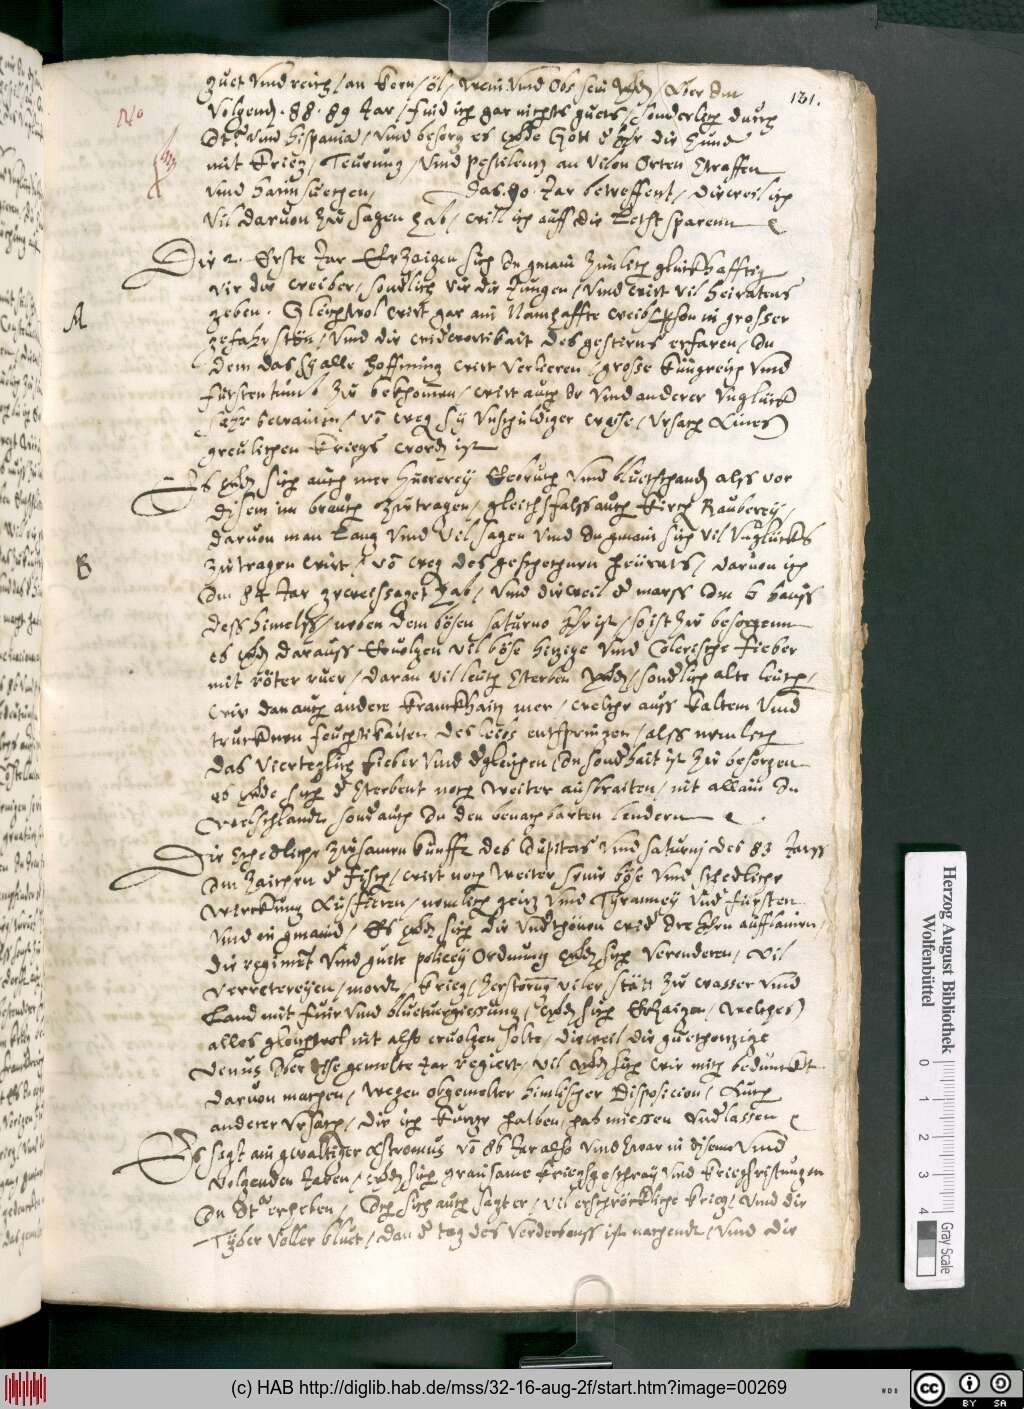 131.
No
guet vnd reich / an Korn / öl / Wein vnd Obs sein
volgend. 88. 89 Jar / find ich gar nichts guets / sonderlich durch
vnd Hispania / vnd besorg es Gott die hund
mit Krieg / Teurung / vnd Pestilentz an vilen Orten straffen
vnd haimsuechen / Das. 90. Jar betreffent / dieweil ich
vil daruon zu sagen hab / will ich auff die Letst sparenn
Die 2. Erste Jar Erzaigen sich In gmain zimlich glückhafftig
vir die weiber / sonderlich vir die Jungen / vnd wirt vil heiratens
geben. Gleichwol wirt gar ain Namhaffte weibs Person in grosser
gefahr stön / vnd die widerwertikait des gestirns erfaren / In
dem das sy alle hoffnung wirt verlieren / grosse Künigreich vnd
fürstentumb zu bekhomen / wirt auch Ir vnd anderer vnglück
seher bewainen / võ weg sy vnschuldiger weise / vrsach Aines
greulichen Kriegs word ist
A
Es sich auch mer huererey Eebruch vnd bluetschand alss vor
disem im brauch zutragen / gleichsfalss auch Kirch Rauberey /
daruon man Lang vnd vil sagen vnd In gmain sich vil vnglücks
zutragen wirt / võ weg des geschechnen heürats / daruon ich
Im 84 Jar geweissaget hab / vnd dieweil d marss Im 6 hauss
dess himelss / neben dem bösen saturno steet / so ist zu besorgenn
es darauss Eruolgen vil böse hitzige vnd Colerische fieber
mit röter ruer / daran vil leüth sterben / sonderlich alte leüth /
wie dan auch andere Kranckhait mer / welche auss Kaltem vnd
trucknen feuchtikaiten des leibs entspringen / alss nemlich
das viertegliche fieber vnd dgleichen / In sonderhait ist zu besorgen
es sich d sterbent noch weiter aussbraiten / nit allain In
Welschlandt sonder auch In den benachbarten lendern
B
Die schedliche zusamen kunfft des Jupiters vnd saturnj des 83 Jarss
Im zaichen d fisch / wirt noch weiter seine böse vnd schedliche
Wirckung Ausfieren / nemlich geitz vnd Tyranney vnd fürsten
vnd in gmaind / Es sich die vnderthonen wider Ire Hern aufflainen /
die regiment vnd guete policey Ordnung sich verenderen / vil
verretereyen / mordt / krieg / zerstörung viler stätt zu wasser vnd
Land mit fuir vnd bluetuergiessung / sich Erzaigen / Welches
alles gleichwol nit also eruolgen solte / dieweil die guethertzige
Venus Iber dise gemelte Jar Regiert / vil sich wie mich bedunckt
daruon machen / wegen obgemelter himlischer Disposicion / Auch
anderer vrsach / die ich Kürze halben / hab miessen vnderlassen
Es sagt ain gwaltiger Astronomus võ 86 Jar also vnd zwar in disem vnd
volgenden Jaren / sich grausame kriegsgeschray vnd kriegsristungen
In erheben / sich auch sagt er / vil erschröckliche krieg / vnd die
Tyber voller bluet / dan d tag des verderbenss ist nachendt / vnd die
Herzog August Bibliothek
Wolfenbüttel
0 1 2 3 4 Gray Scale
(c) HAB http://diglib.hab.de/mss/32-16-aug-2f/start.htm?image=00269
WDB
cc BY SA